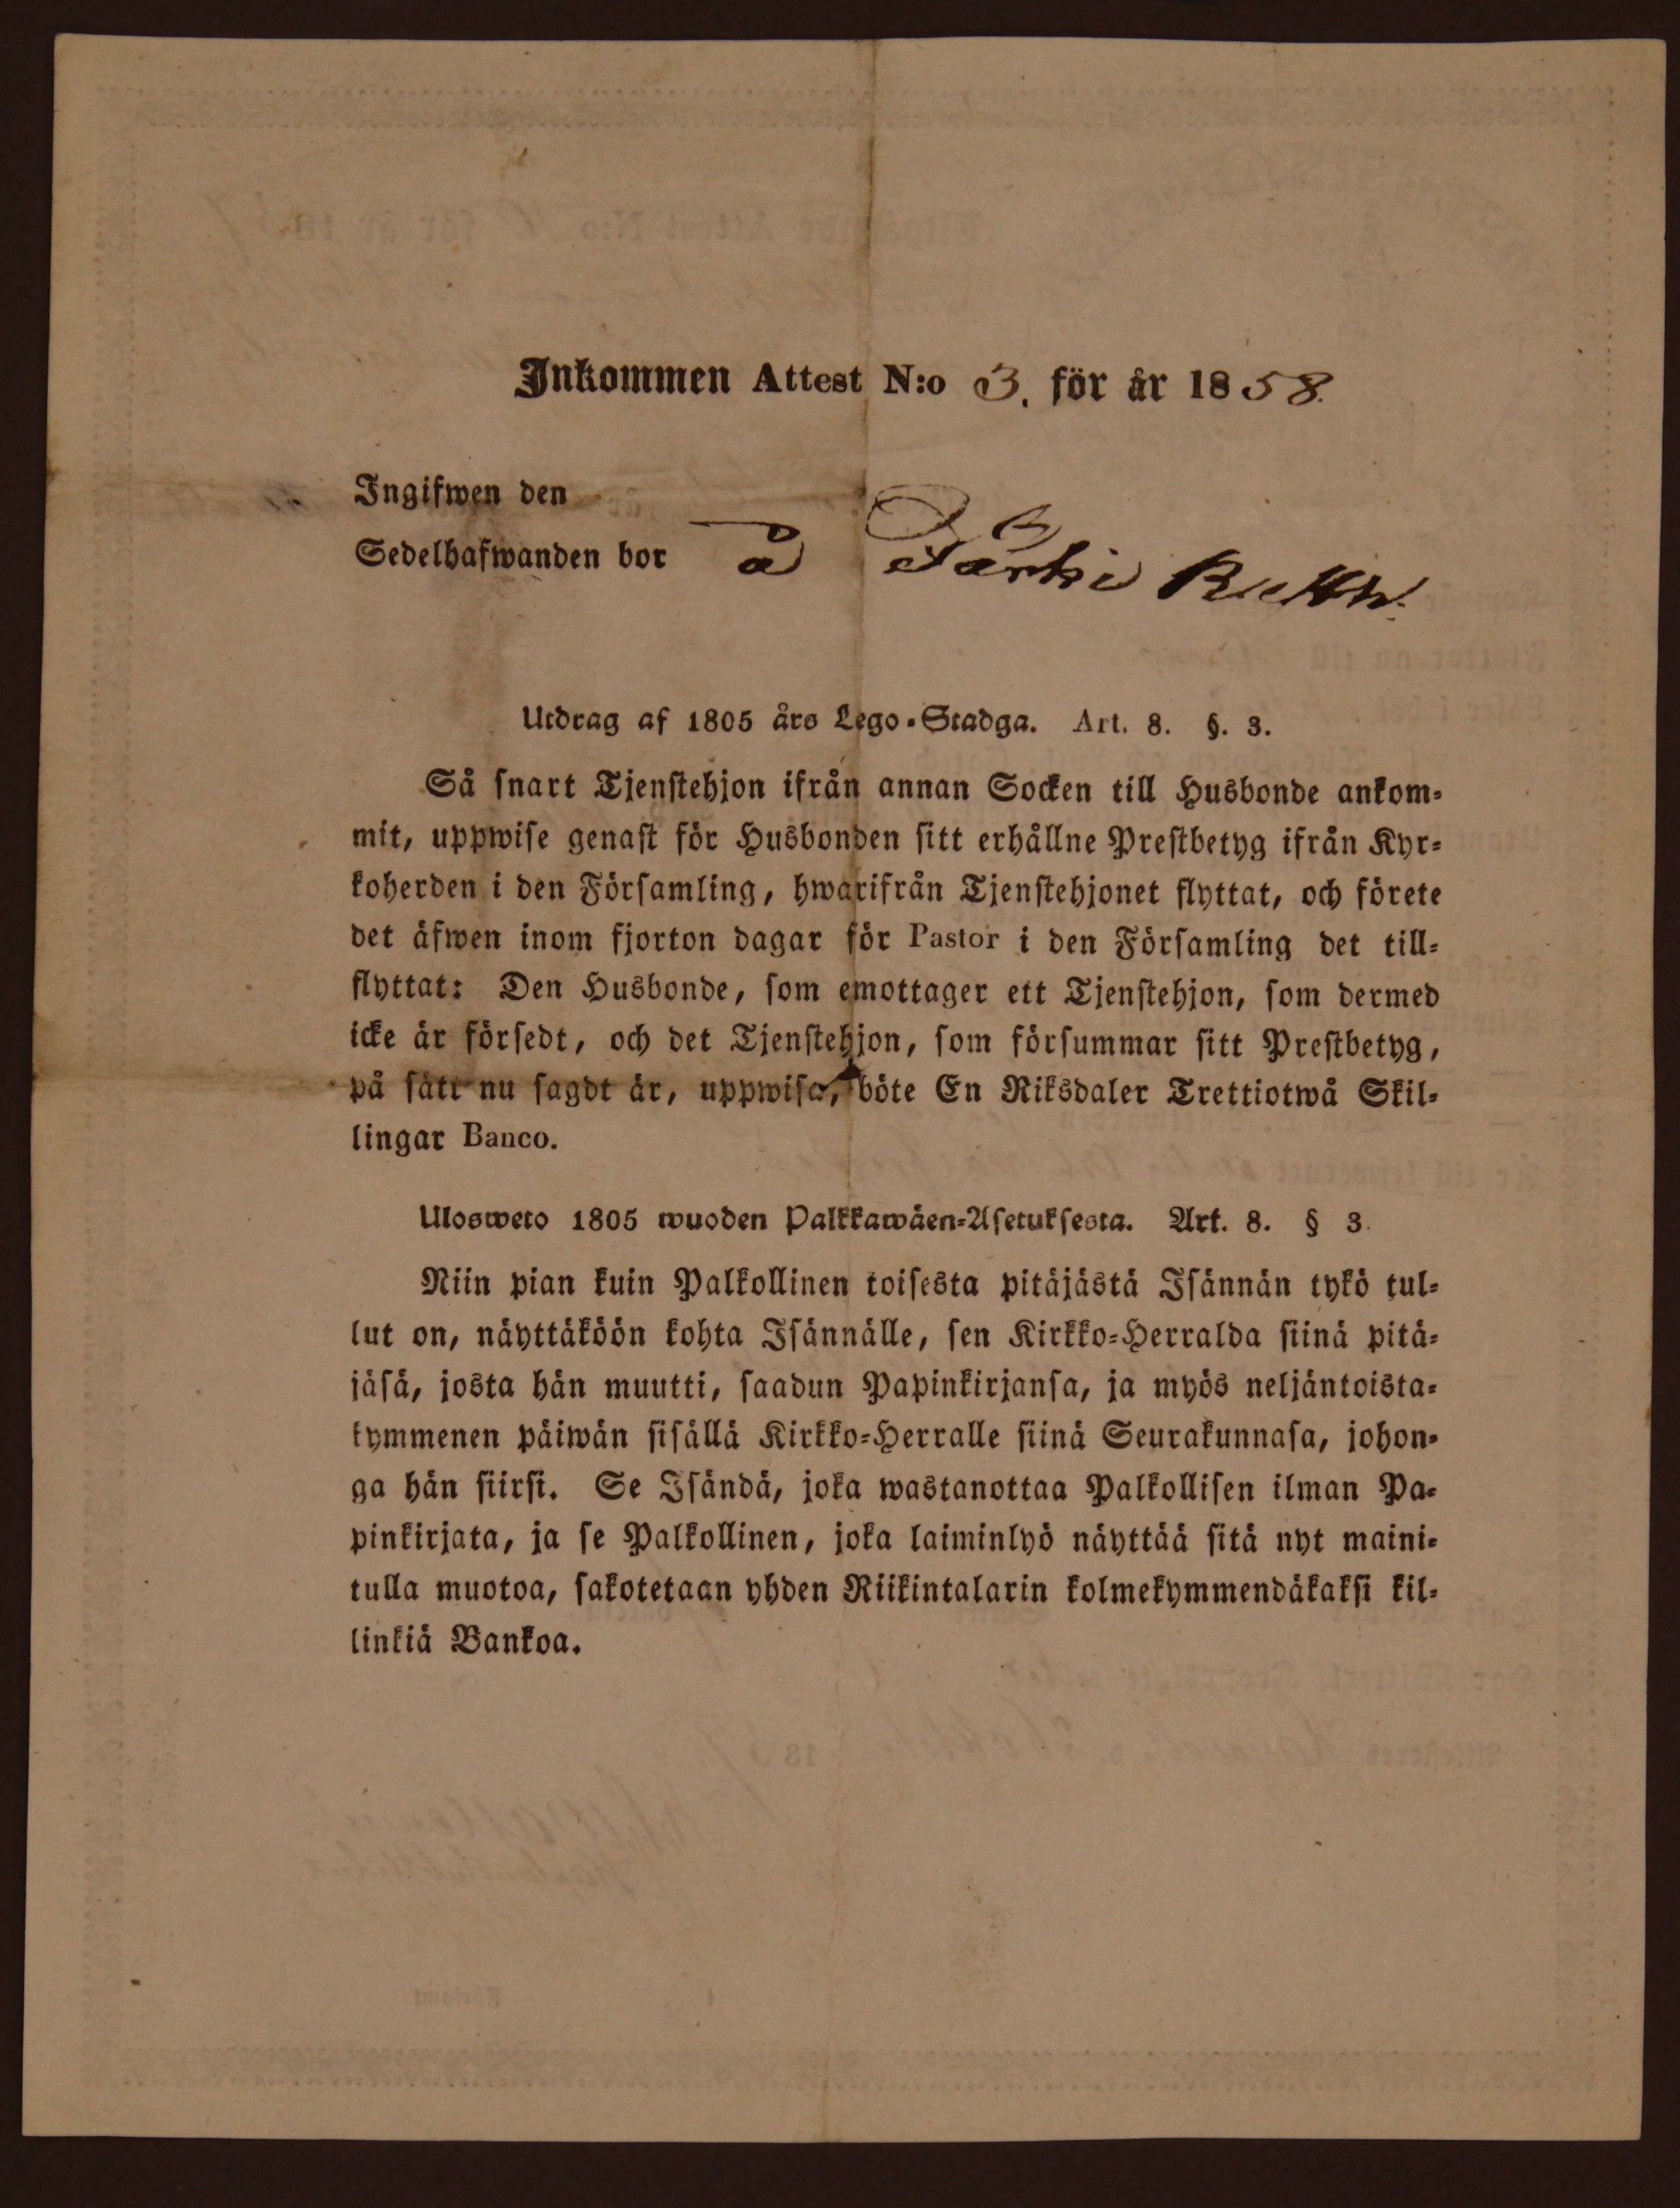 Inkommen Attest N:o 3. för år 1858.
Ingifwen den
Sedelhafwanden bor å
Utdrag af 1805 års Lego-Stadga. Art. 8. §. 3.
Så snart Tjenstehjon ifrån annan Socken till Husbonde ankom-
mit, uppwise genast för Husbonden sitt erhållne Prestbetyg ifrån Kyr-
koherden i den Församling, hwarifrån Tjenstehjonet flyttat, och förete
det äfwen inom fjorton dagar för Pastor i den Församling det till-
flyttat: Den Husbonde, som emottager ett Tjenstehjon, som dermed
icke är försedt, och det Tjenstehjon, som försummar sitt Prestbetyg,
på sätt nu sagdt är, uppwisa, böte En Riksdaler Trettiotwå Skil-
lingar Banco.
Ulosweto 1805 wuoden Palkkawäen-Asetuksesta. Art. 8. § 3.
Niin pian kuin Palkollinen toisesta pitäjästä Isännän tykö tul-
lut on, näyttäköön kohta Isännälle, sen Kirkko-Herralda siinä pitä-
jäsä, josta hän muutti, saadun Papinkirjansa, ja myös neljäntoista-
kymmenen päiwän sisällä Kirkko-Herralle siinä Seurakunnasa, johon-
ga hän siirsi. Se Isändä, joka wastanottaa Palkollisen ilman Pa-
pinkirjata, ja se Palkollinen, joka laiminlyö näyttää sitä nyt maini-
tulla muotoa, sakotetaan yhden Riikintalarin kolmekymmendäkaksi kil-
linkiä Bankoa.